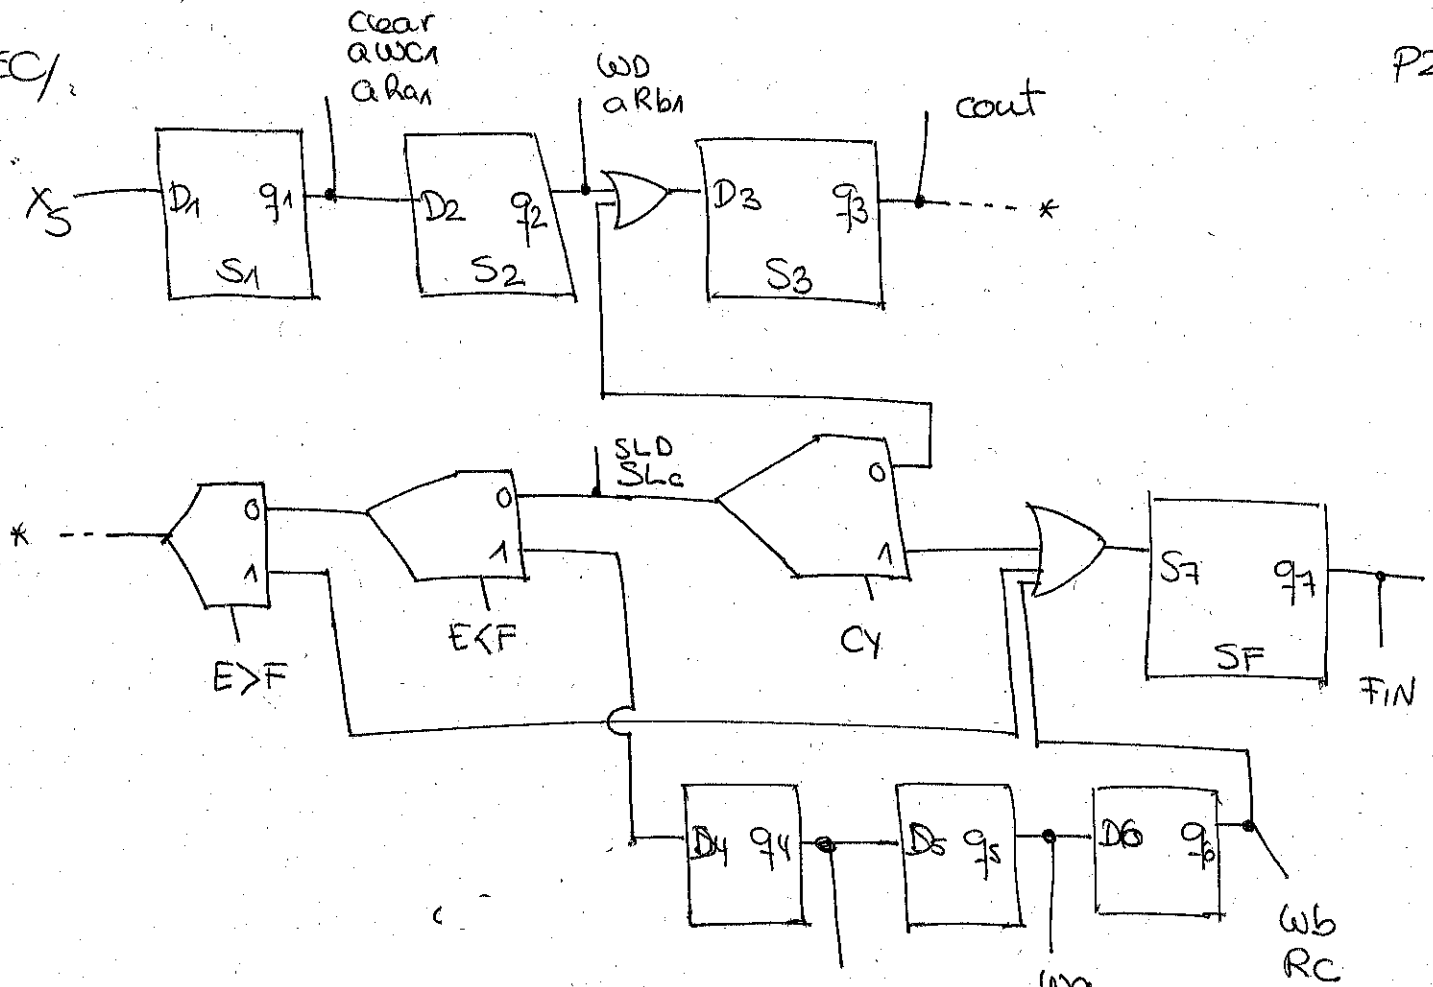 EC/.
P2
clear
aWC1
aRa1
WD
aRb1
cout
XS
D1 q1
S1
D2 q2
S2
D3 q3
S3
*
*
0
1
E>F
0
1
E<F
SLD
SLc
0
1
CY
S7 q7
SF
FIN
D4 q4
D5 q5
D6 q6
Wb
RC